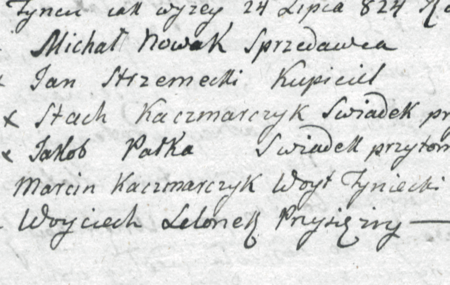 Tyncu jak wyzey 24 Lipca 824
Michał Nowak Sprzedawca
Jan Strzemecki Kupiciel
x Stach Kaczmarczyk Swiadek
x Jakob Pałka Swiadek
Marcin Kaczmarczyk Woyt Tyniecki
Woyciech Lelonek Przysiężny